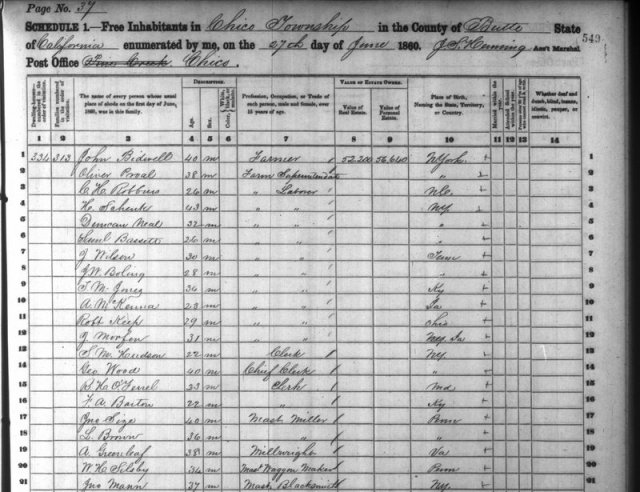 Page No. 37
SCHEDULE 1.—Free Inhabitants in Chico Township in the County of Butte State
of California enumerated by me, on the 27th day of June 1860. Ass't Marshal.
549
Post Office Chico.
Dwelling-houses— numbered in the order of visitation.
Families numbered in the order of visitation.
The name of every person whose usual place of abode on the first day of June, 1860, was in this family.
DESCRIPTION.
Age.
Sex.
Color,
Profession, Occupation, or Trade of each person, male and female, over 15 years of age.
VALUE OF ESTATE OWNED.
Value of Real Estate.
Value of Personal Estate.
Place of Birth, Naming the State, Territory, or Country.
Married within the year.
Attended School within the year.
Whether deaf and dumb, blind, insane, idiotic, pauper, or convict.
1 2 3 4 5 6 7 8 9 10 11 12 13 14
1 334 313 John Bidwell 40 m Farmer 52,200 56,640 N York 1
2 Oliver Proal 38 m Farm Superintendent " 2
3 C H Robbins 26 m " Laborer N.C. 3
4 H. Schenk 43 m " " NY. 4
5 Duncan Neal 32 m " " " 5
6 Bassett 26 m " " " 6
7 J Wilson 30 m " " Tenn 7
8 J W Boling 28 m " " " 8
9 S. M. Jones 34 m " " Ky 9
10 A. McKenna 23 m " " 10
11 Robt Keep 29 m " " Ohio 11
12 J 31 m " " 12
13 S. M. Hudson 22 m Clerk NY. 13
14 Geo Wood 40 m Chief Clerk " 14
15 O'Ferrel 23 m Clerk Md 15
16 F A. Barton 22 m " Ky 16
17 Jno Size 40 m Mast Miller Penn 17
18 L. Brown 36 m " " 18
19 A. Greenleaf 38 m Millwright Va 19
20 W H Selsby 34 m Mast Waggon Maker Penn 20
21 Jno Mann 37 m Mast Blacksmith NY. 21